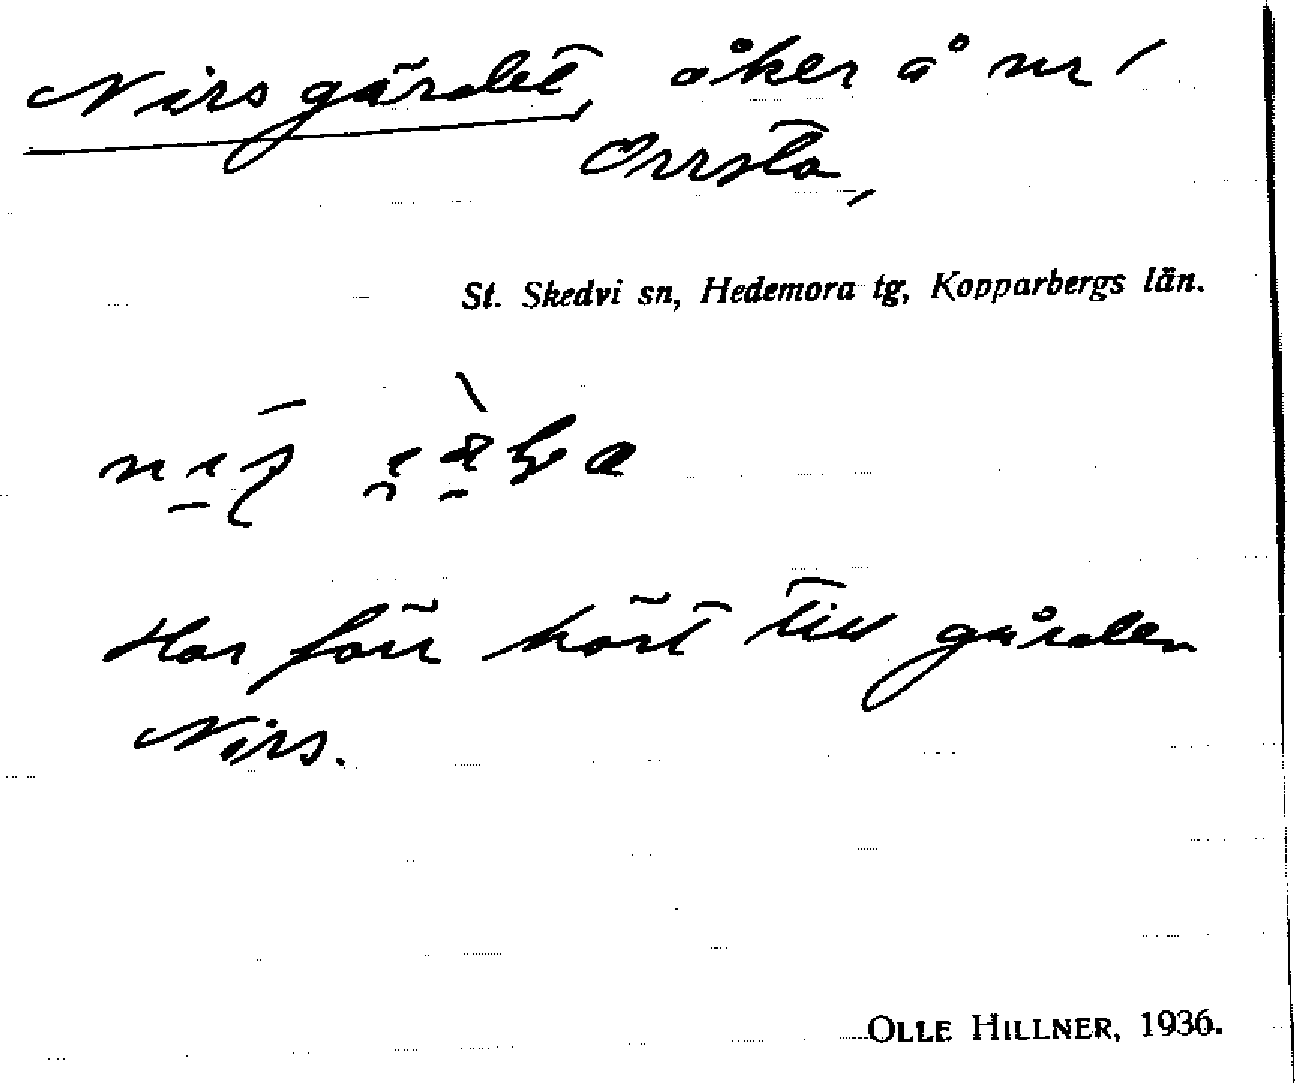 Nirsgärdet, åker å nr 1
Orrsta,
St. Skedvi sn, Hedemora tg, Kopparbergs län.
Har förr hört till gården
Nirs.
OLLE HILLNER, 1936.